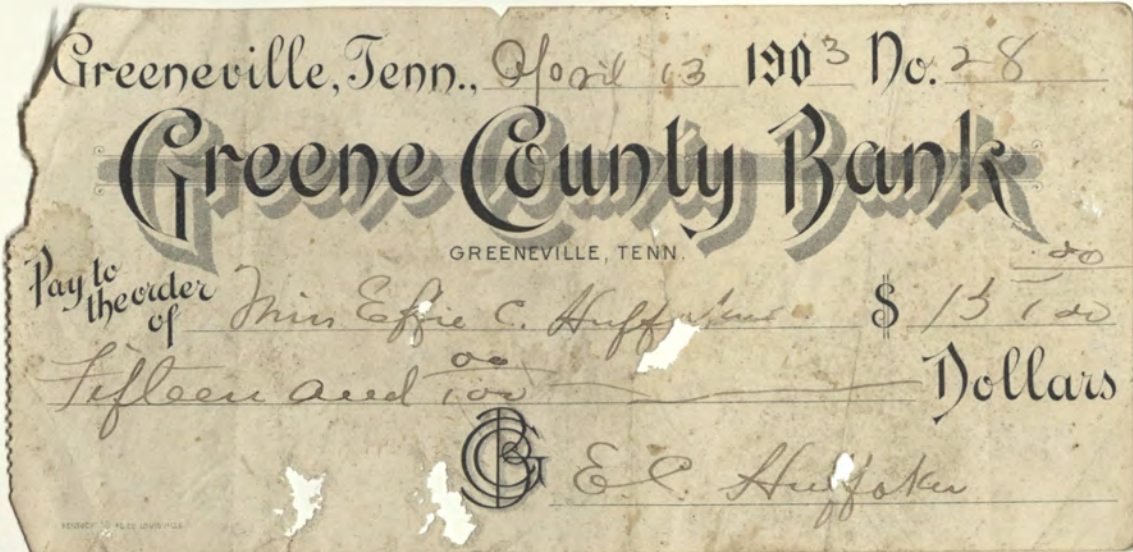 Greeneville, Tenn., April 13 1903 No. 28
Greene County Bank
GREENEVILLE, TENN.
Pay to the order of Miss Effie C. $ 15 00/100
Fifteen and 00/100 Dollars
GCB E. C. Huffaker